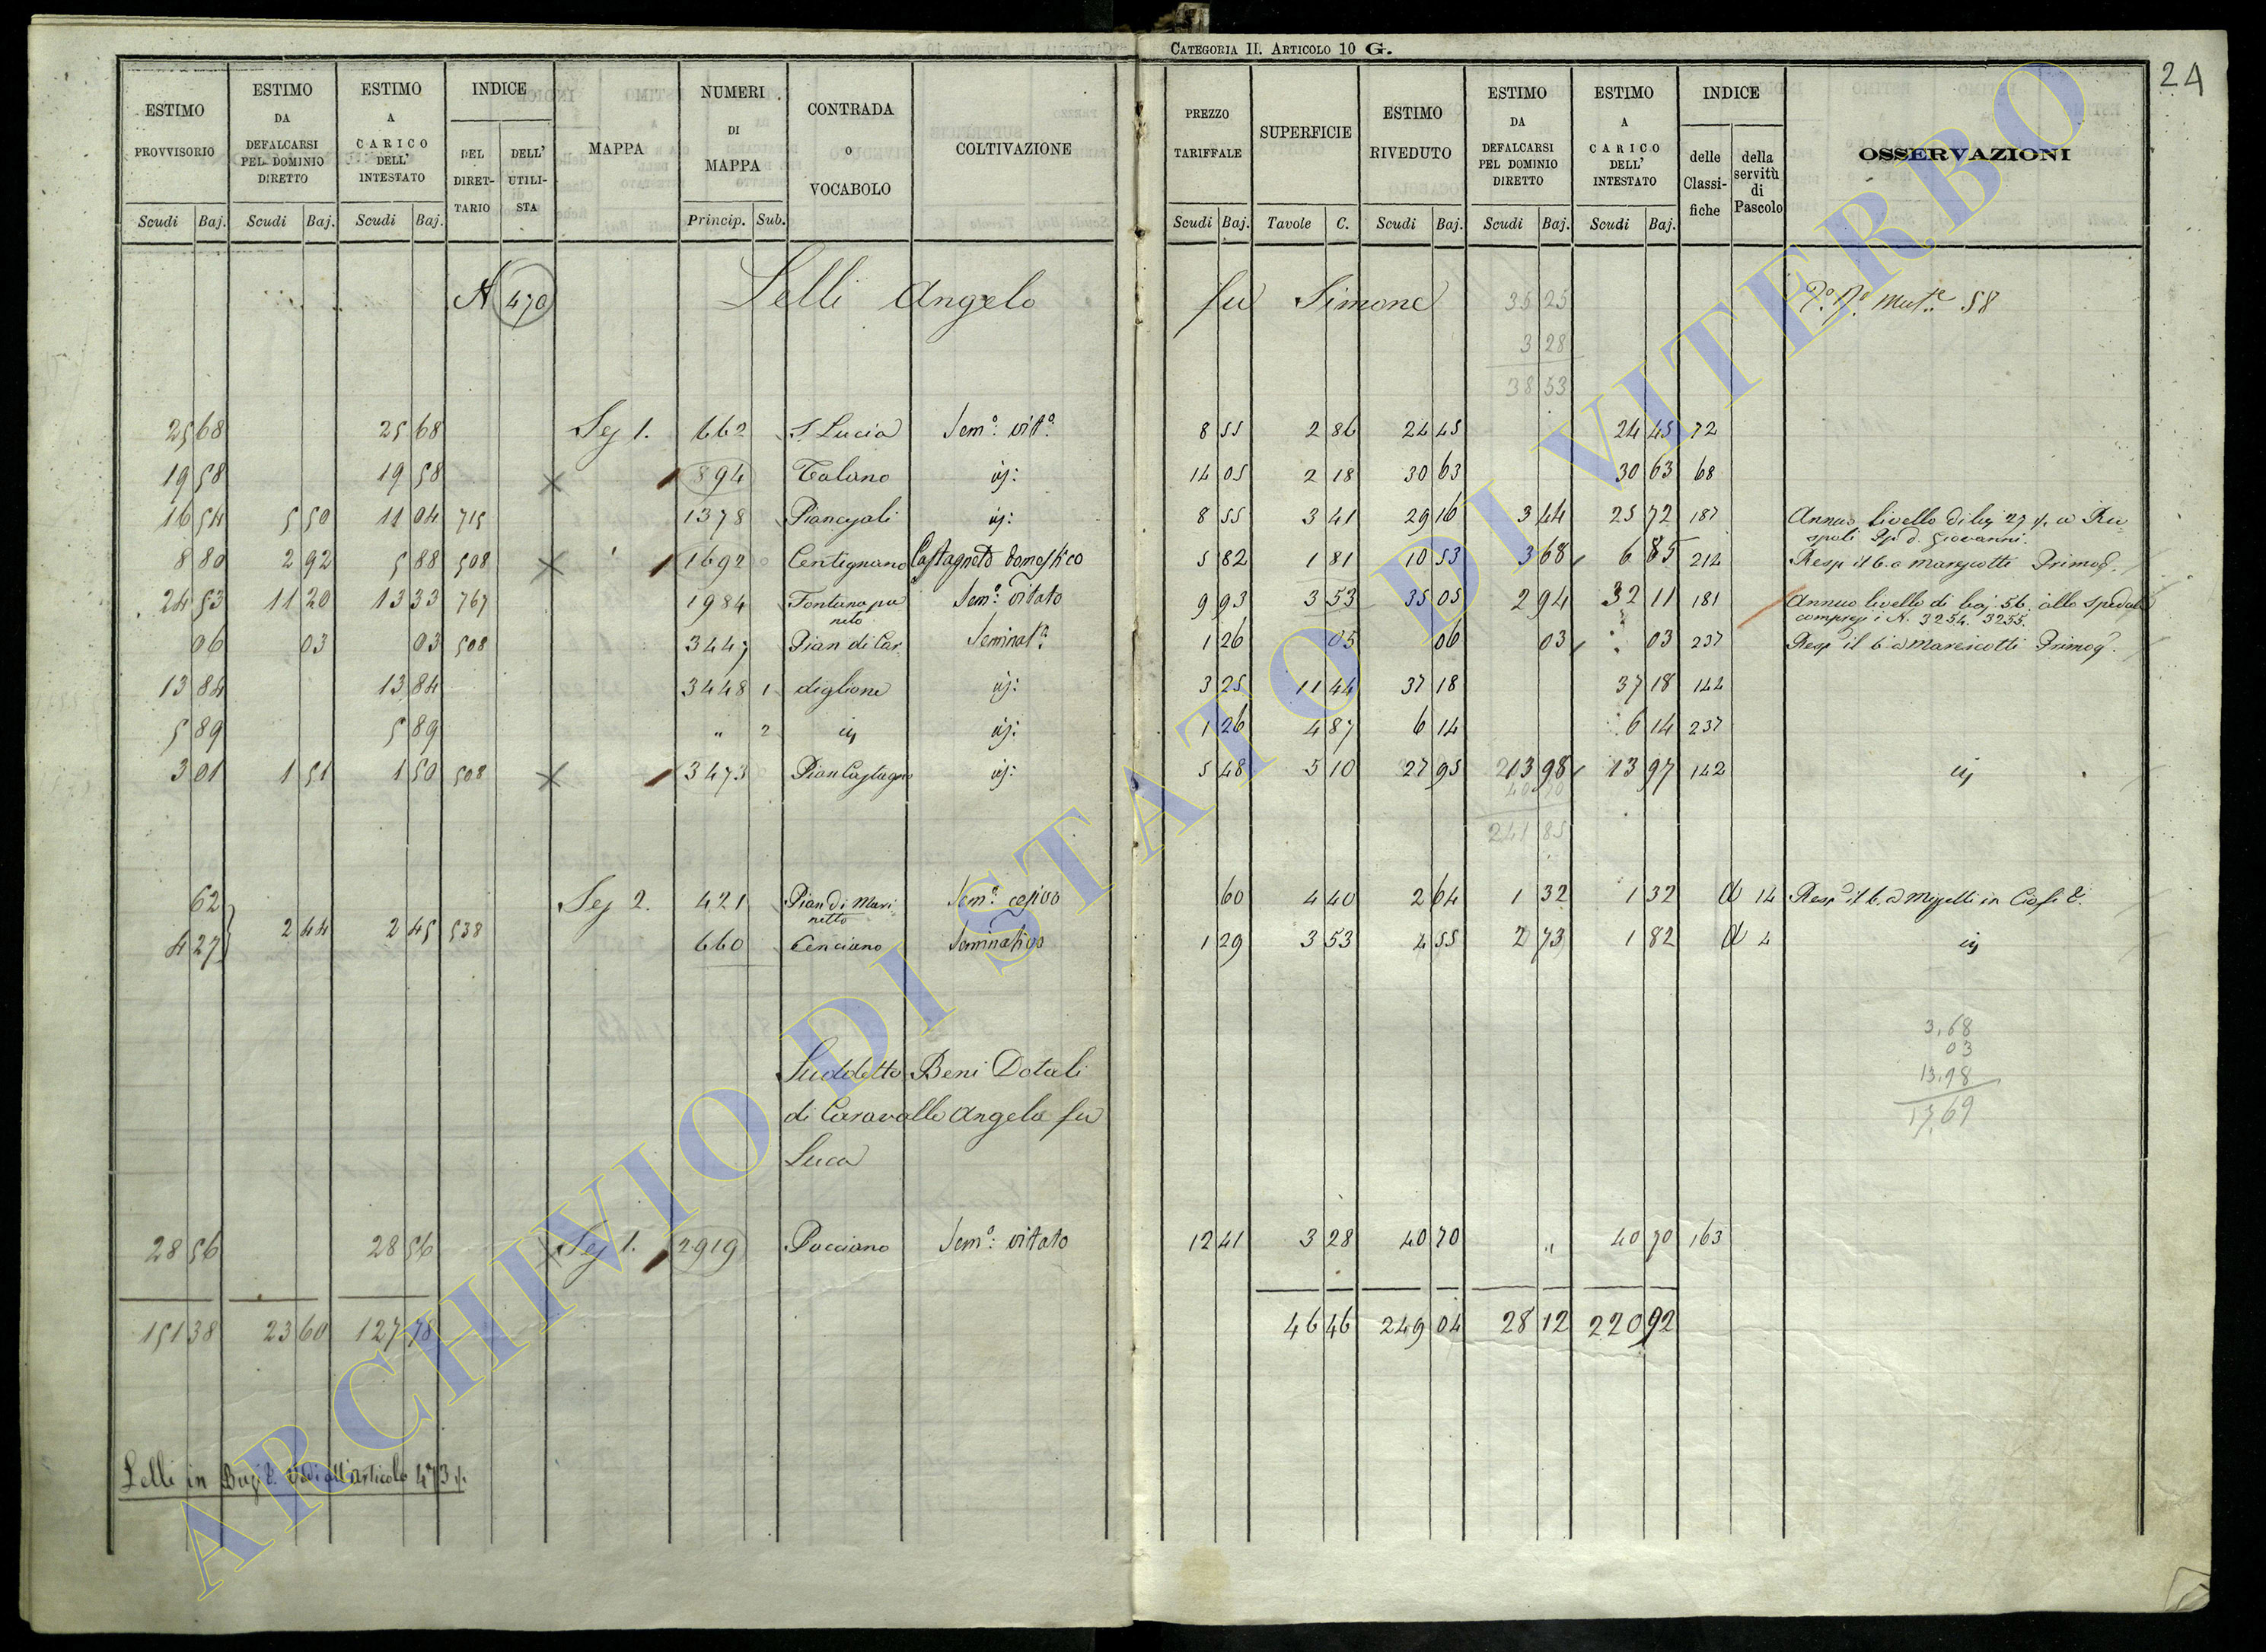 CATEGORIA II. ARTICOLO 10 G.
24
ESTIMO PROVVISORIO Scudi Baj.
ESTIMO DA DEFALCARSI PEL DOMINIO DIRETTO Scudi Baj.
ESTIMO A CARICO DELL' INTESTATO Scudi Baj.
INDICE DEL DIRETTARIO DELL' UTILISTA
MAPPA
NUMERI DI MAPPA Princip. Sub.
CONTRADA O VOCABOLO
COLTIVAZIONE
PREZZO TARIFFALE Scudi Baj.
SUPERFICIE Tavole C.
ESTIMO RIVEDUTO Scudi Baj.
ESTIMO DA DEFALCARSI PEL DOMINIO DIRETTO Scudi Baj.
ESTIMO A CARICO DELL' INTESTATO Scudi Baj.
INDICE delle Classifiche della servitù di Pascolo
OSSERVAZIONI
470 Lelli Angelo fu Simone 58
35 25
3 28
38 53
25 68 25 68 Sez 1. 662 S. Lucia Sem.º vit.º 8 55 2 86 24 45 24 45 72
19 58 19 58 894 Talano id: 14 05 2 18 30 63 30 63 68
16 54 5 50 11 04 715 1378 id: 8 55 3 41 29 16 3 44 25 72 187 Annuo livello di baj 27 a Ruspoli d. Giovanni.
8 80 2 92 5 88 508 1692 Centignano Castagneto domestico 5 82 1 81 10 53 3 68 6 85 214 Resp il b. a Marescotti Primog.
24 53 11 20 13 33 767 1984 Fontana pianeto Sem.º vitato 9 93 3 53 35 05 2 94 32 11 181 Annuo livello di baj. 56. allo Spedale compresi i N. 3254. 3255.
06 03 03 508 3447 Pian di Car Seminat.º 1 26 05 06 03 03 237 Resp il b. a Marescotti Primog.
13 84 13 84 3448 1 diglione id: 3 25 11 44 37 18 37 18 142
5 89 5 89 " 2 id id: 1 26 4 87 6 14 6 14 237
3 01 1 51 1 50 508 3473 Pian Castagno id: 5 48 5 10 27 95 13 98 13 97 142 id
241 85
62 Sez 2. 421 Pian di Marinetto Sem.º cesivo 60 4 40 2 64 1 32 1 32 a 14
4 27 2 44 2 45 538 660 Cenciano Seminativo 1 29 3 53 4 55 2 73 1 82 a 4 id
3,68
03
13,98
17,69
Suddetto Beni Dotali
di Caravalle Angela fu
Luca
28 56 28 56 Sez 1. 2919 Pacciano Sem.º vitato 12 41 3 28 40 70 " 40 70 163
151 38 23 60 127 78 46 46 249 04 28 12 220 92
Lelli in vedi all'articolo 473
ARCHIVIO DI STATO DI VITERBO